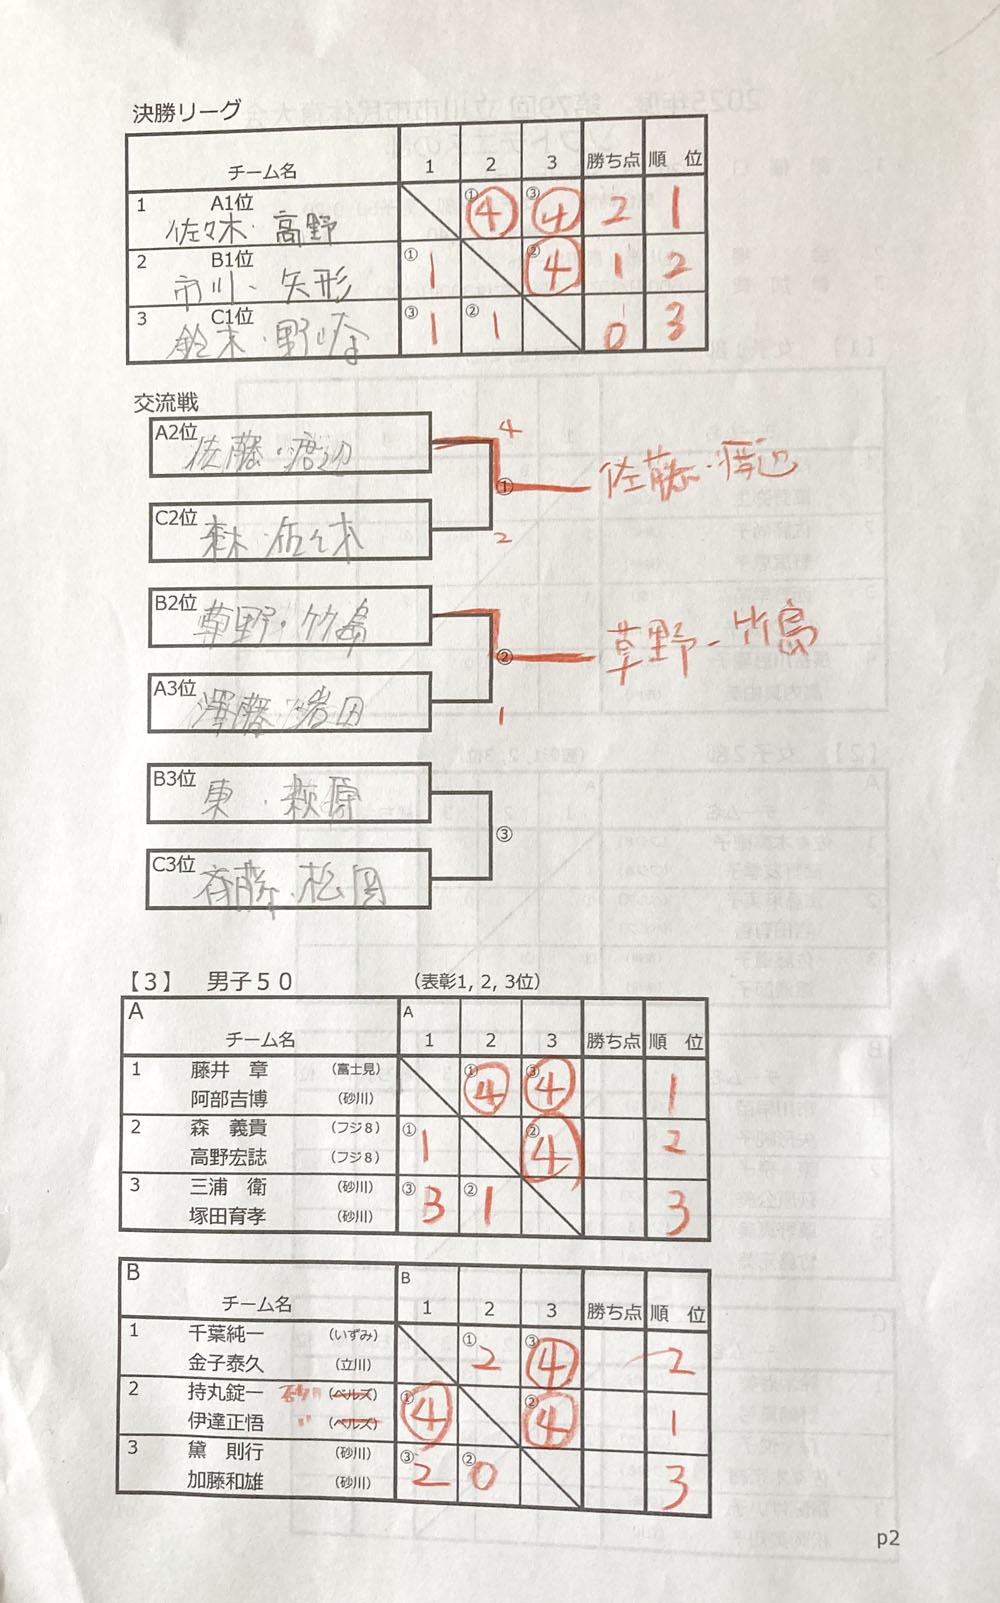 決勝リーグ
チーム名 1 2 3 勝ち点 順 位
1 A1位 ① ④ ③ ④ 2 1
佐々木・高野
2 B1位 ① 1 ② ④ 1 2
市川・矢形
3 C1位 ③ 1 ② 1 0 3
鈴木・野崎
交流戦
A2位 4
佐藤・渡辺 ① 佐藤・渡辺
C2位 2
森・佐々木
B2位
草野・竹島 ② 草野・竹島
A3位 1
澤藤・岩田
B3位
東・萩原 ③
C3位
斉藤・松岡
【3】 男子50 (表彰1, 2, 3位)
A A
チーム名 1 2 3 勝ち点 順 位
1 藤井 章 (富士見) ① ④ ③ ④ 1
阿部吉博 (砂川)
2 森 義貴 (フジ8) ① 1 ② ④ 2
高野宏誌 (フジ8)
3 三浦 衛 (砂川) ③ 3 ② 1 3
塚田育孝 (砂川)
B B
チーム名 1 2 3 勝ち点 順 位
1 千葉純一 (いずみ) ① 2 ③ ④ 2
金子泰久 (立川)
2 持丸錠一 砂川 (ベルズ) ① ④ ② ④ 1
伊達正悟 〃 (ベルズ)
3 黛 則行 (砂川) ③ 2 ② 0 3
加藤和雄 (砂川)
p2